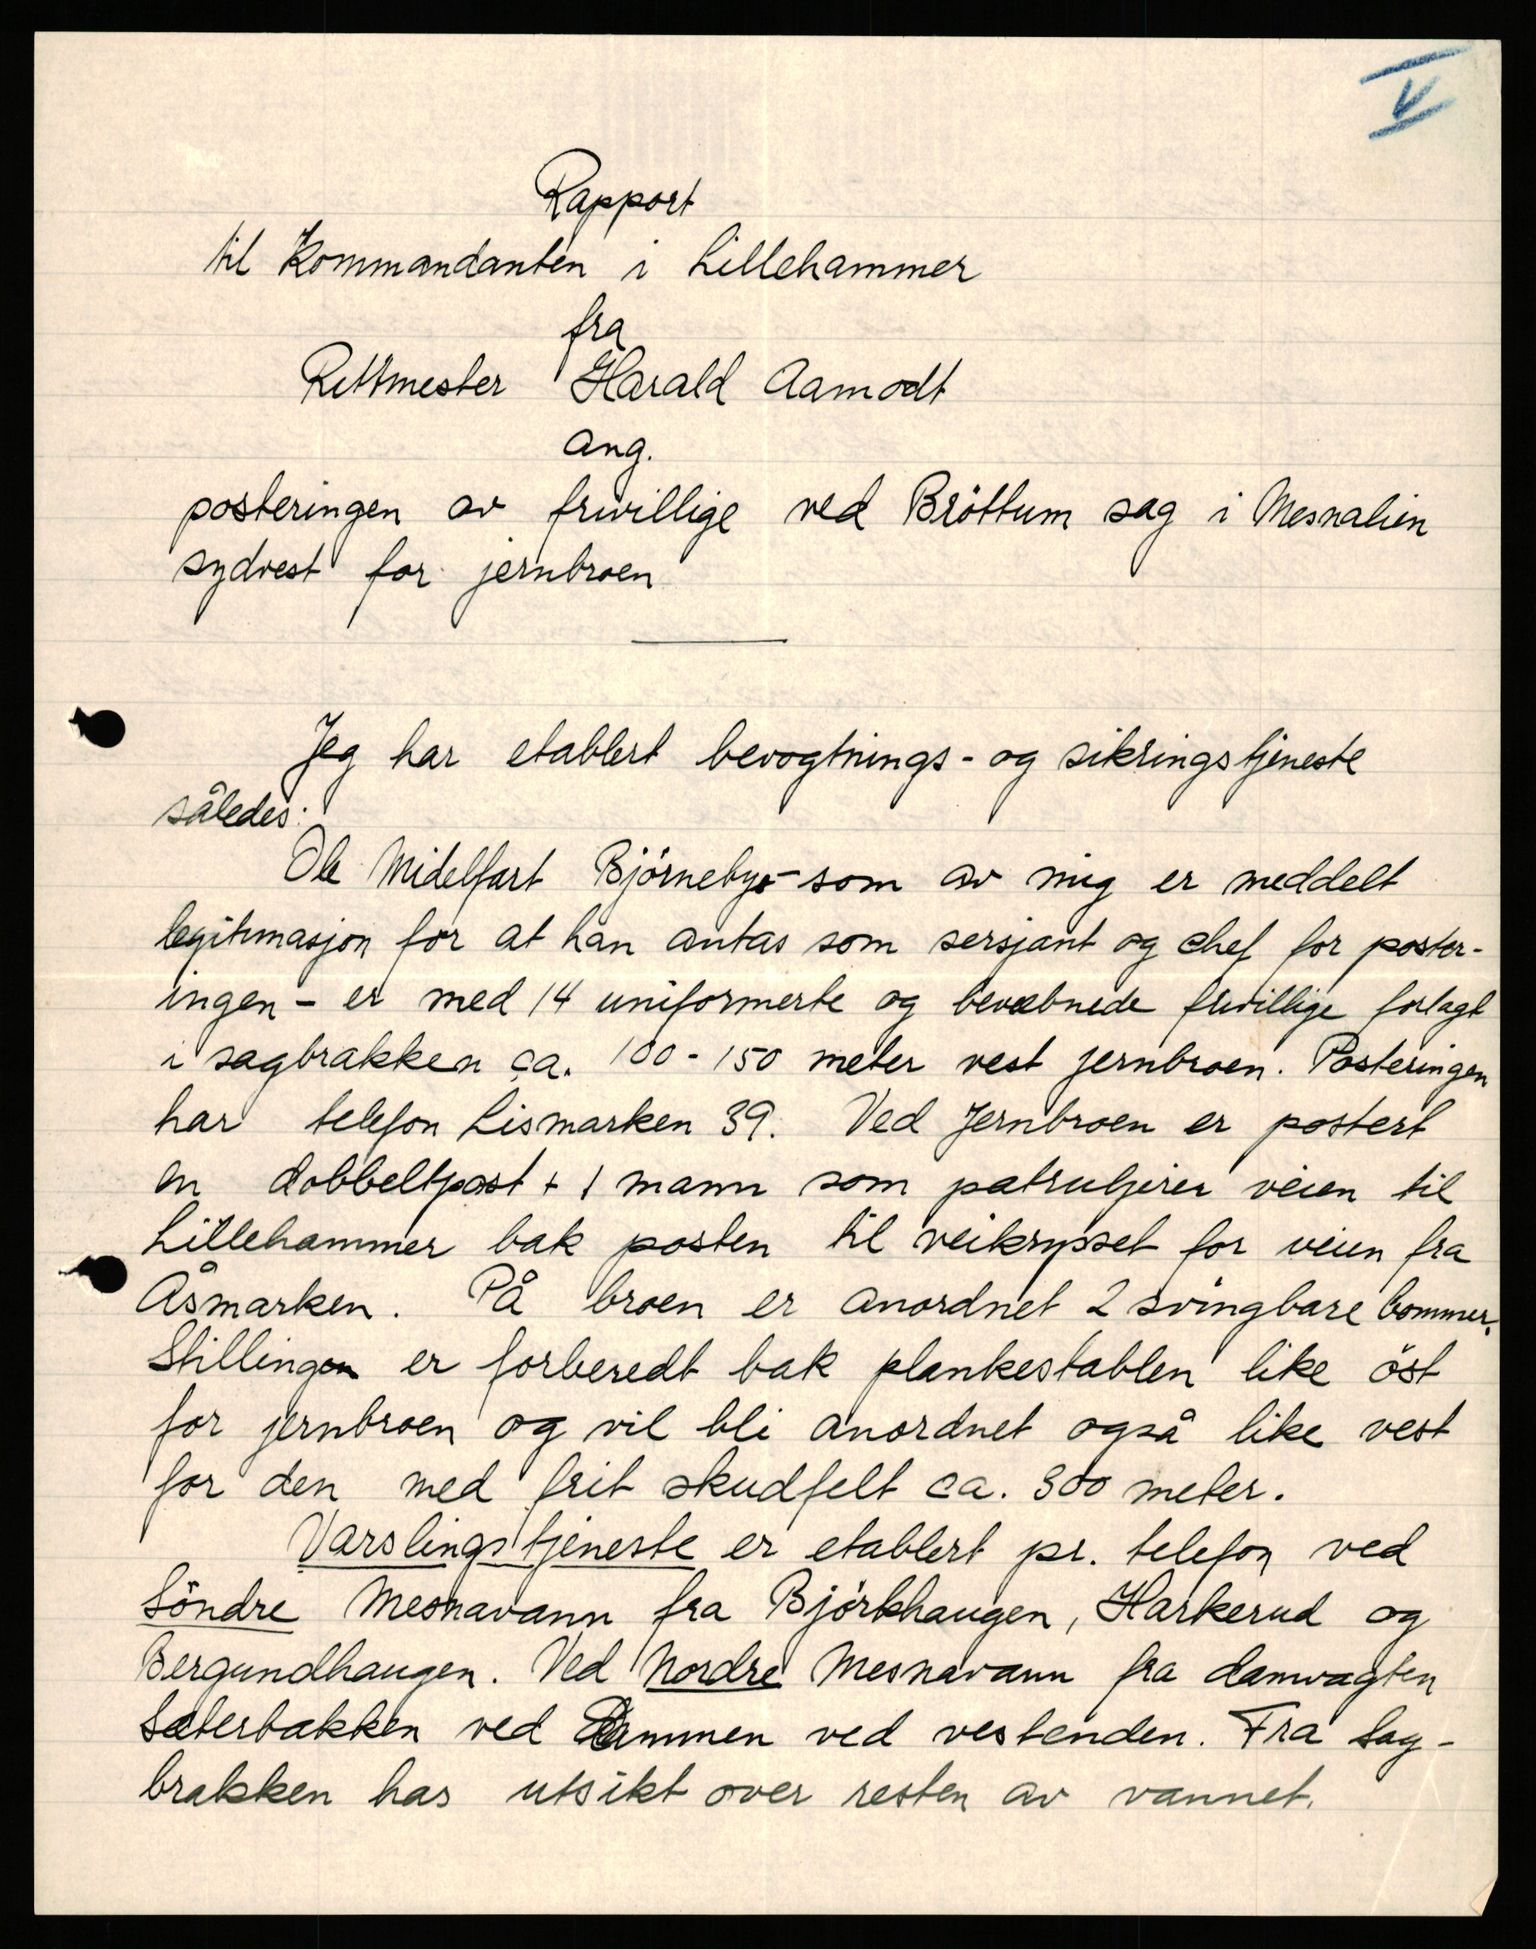 V
Rapport
til Kommandanten i Lillehammer
fra
Rittmester Harald Aamodt
ang.
posteringen av frivillige ved Bröttum sag i Mesnalien
sydvest for jernbroen
Jeg har etablert bevogtnings- og sikringstjeneste
således:
Ole Midelfart Björneby - som av mig er meddelt
legitimasjon for at han antas som sersjant og chef for poster-
ingen - er med 14 uniformerte og bevæbnede frivillige forlagt
i sagbrakken ca. 100-150 meter vest jernbroen. Posteringen
har telefon Lismarken 39. Ved Jernbroen er postert
en dobbeltpost + 1 mann som patruljerer veien til
Lillehammer bak posten til veikrysset for veien fra
Åsmarken. På broen er anordnet 2 svingbare bommer.
Stillingen er forberedt bak plankestablen like öst
for jernbroen og vil bli anordnet også like vest
for den med frit skudfelt ca. 300 meter.
Varslingstjeneste er etablert pr. telefon ved
Söndre Mesnavann fra Björkhaugen, Harkerud og
Bergundhaugen. Ved Nordre Mesnavann fra damvagten
Sæterbakken ved Dammen ved vestenden. Fra Sag-
brakken has utsikt over resten av vannet.